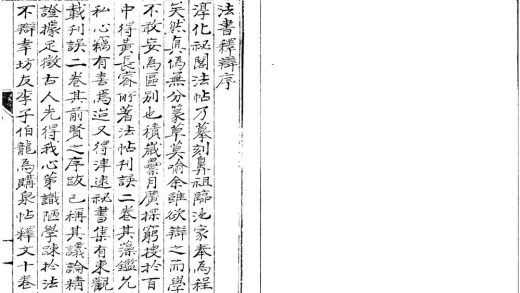 法書釋辯序
淳化祕閣法帖乃摹刻鼻祖臨池家奉為程
矣然真偽無分篆草莫喻余雖欲辯之而學
不敢妄為區別也積歲累月廣探窮搜於百
中得黃長睿所著法帖刊誤二卷其藻鑑允
私心竊有喜焉近又得津逮祕書集有東觀
載刊誤二卷其前賢之序跋已稱其議論精
證據足徵古人先得我心第識陋學踈於法
不辯幸坊友李子伯龍為購泉帖釋文十卷